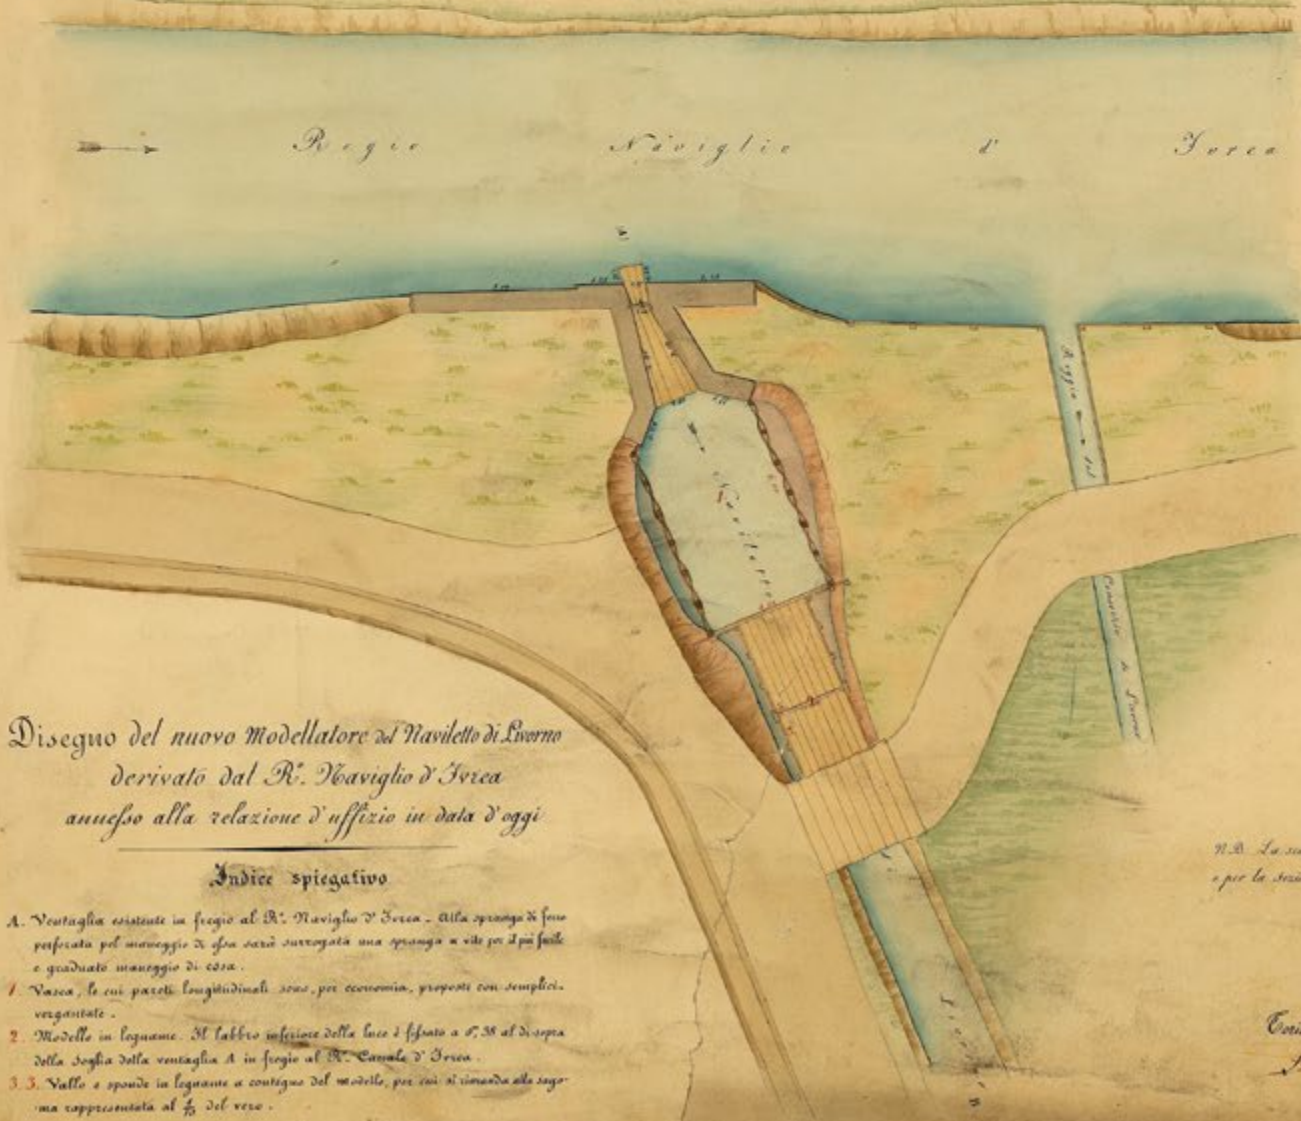 Regio Naviglio d' Ivrea
A
Roggia del
Comunale di Livorno
Naviletto
1
Disegno del nuovo Modellatore del Naviletto di Livorno
derivato dal R.º Naviglio d'Ivrea
annesso alla relazione d'uffizio in data d'oggi
Indice spiegativo
A. Ventaglia esistente in fregio al R.º Naviglio d'Ivrea. Alla spranga di ferro
perforata pel maneggio di essa sarà surrogata una spranga a vite per il più facile
e graduato maneggio di essa.
1. Vasca, le cui pareti longitudinali sono, per economia, proposte con semplici
vergantate.
2. Modello in legname. Il labbro inferiore della luce è fissato a 0,38 al di sopra
della soglia della ventaglia A in fregio al R.º Canale d'Ivrea.
3.3. Vallo e sponde in legname a contiguo del modello, per cui si rimanda alla sago-
ma rappresentata al del vero.
N.B. La
e per la